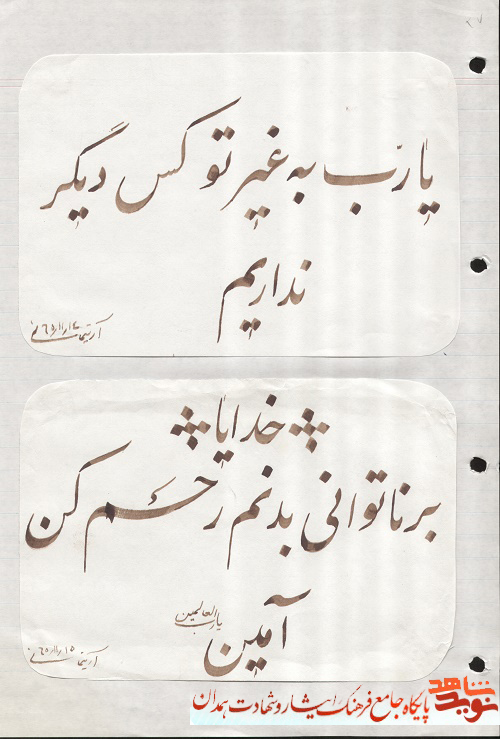 یا ربّ به غیر تو کس دیگر
نداریم
خدایا
بر ناتوانی بدنم رحم کن
آمین
یا رب العالمین
نوید شاهد
پایگاه جامع فرهنگ ایثار و شهادت همدان